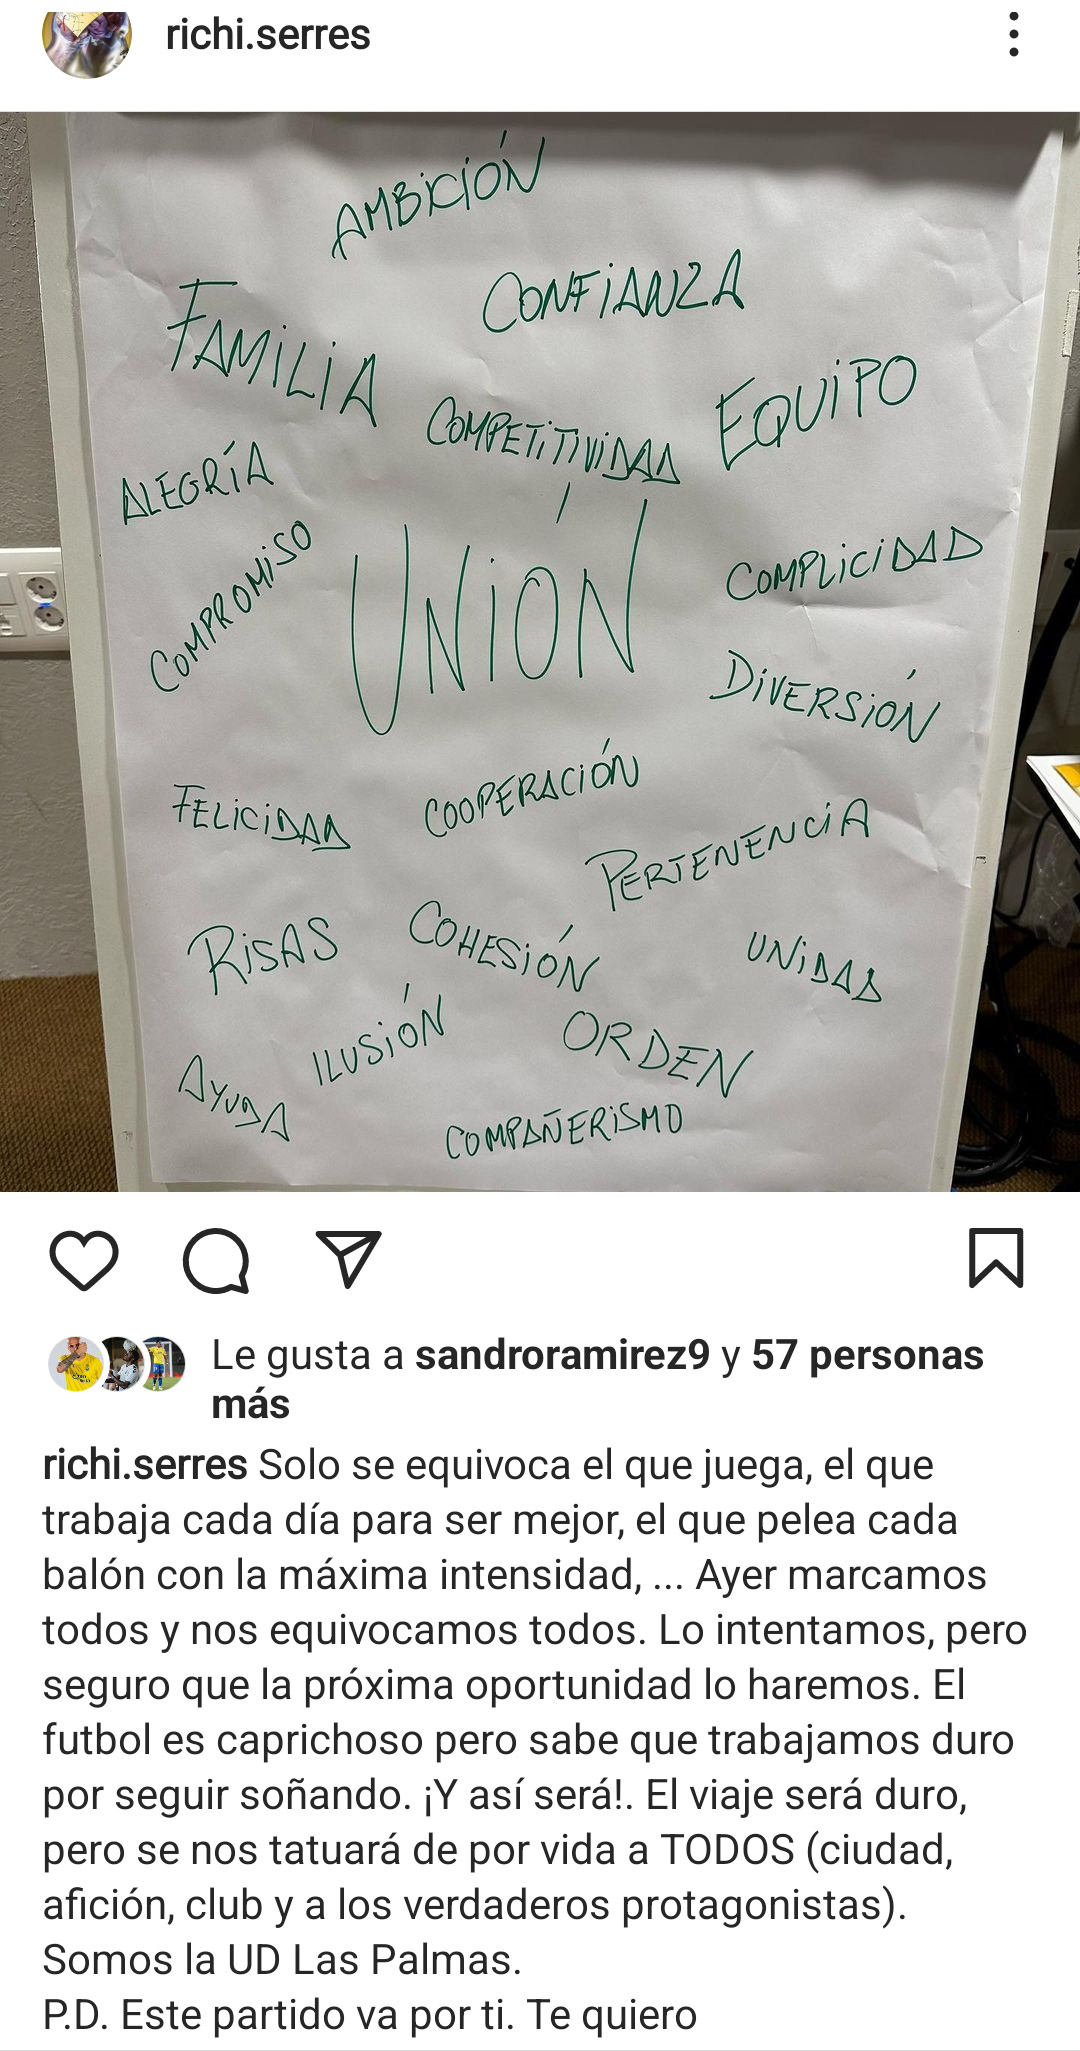 richi.serres
AMBICIÓN
CONFIANZA
FAMILIA
EQUIPO
COMPETITIVIDAD
ALEGRÍA
COMPROMISO
UNIÓN
COMPLICIDAD
DIVERSIÓN
FELICIDAD
COOPERACIÓN
PERTENENCIA
RISAS
COHESIÓN
UNIDAD
ILUSIÓN
ORDEN
AYUDA
COMPAÑERISMO
Le gusta a sandroramirez9 y 57 personas
más
richi.serres Solo se equivoca el que juega, el que
trabaja cada día para ser mejor, el que pelea cada
balón con la máxima intensidad, ... Ayer marcamos
todos y nos equivocamos todos. Lo intentamos, pero
seguro que la próxima oportunidad lo haremos. El
futbol es caprichoso pero sabe que trabajamos duro
por seguir soñando. ¡Y así será!. El viaje será duro,
pero se nos tatuará de por vida a TODOS (ciudad,
afición, club y a los verdaderos protagonistas).
Somos la UD Las Palmas.
P.D. Este partido va por ti. Te quiero